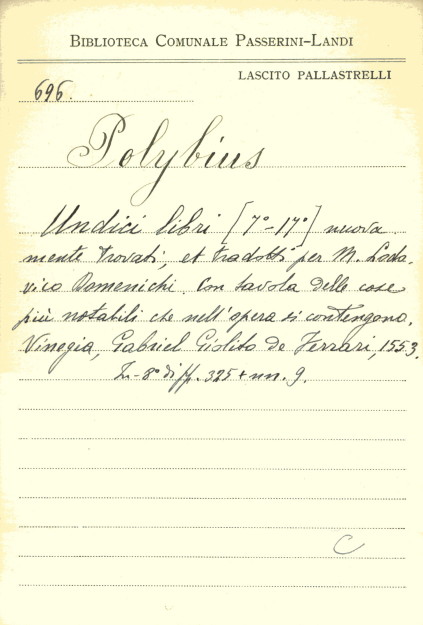 BIBLIOTECA COMUNALE PASSERINI-LANDI
LASCITO PALLASTRELLI
696.
Polybius
Undici libri [7º-17º] nuova
mente trovati, et tradotti per M. Lodo,
vico Domenichi. Con tavola delle cose
più notabili che nell'opera si contengono.
Vinegia, Gabriel Giolito de Ferrari, 1553.
In-8º di ff. 325 + nn. 9.
C